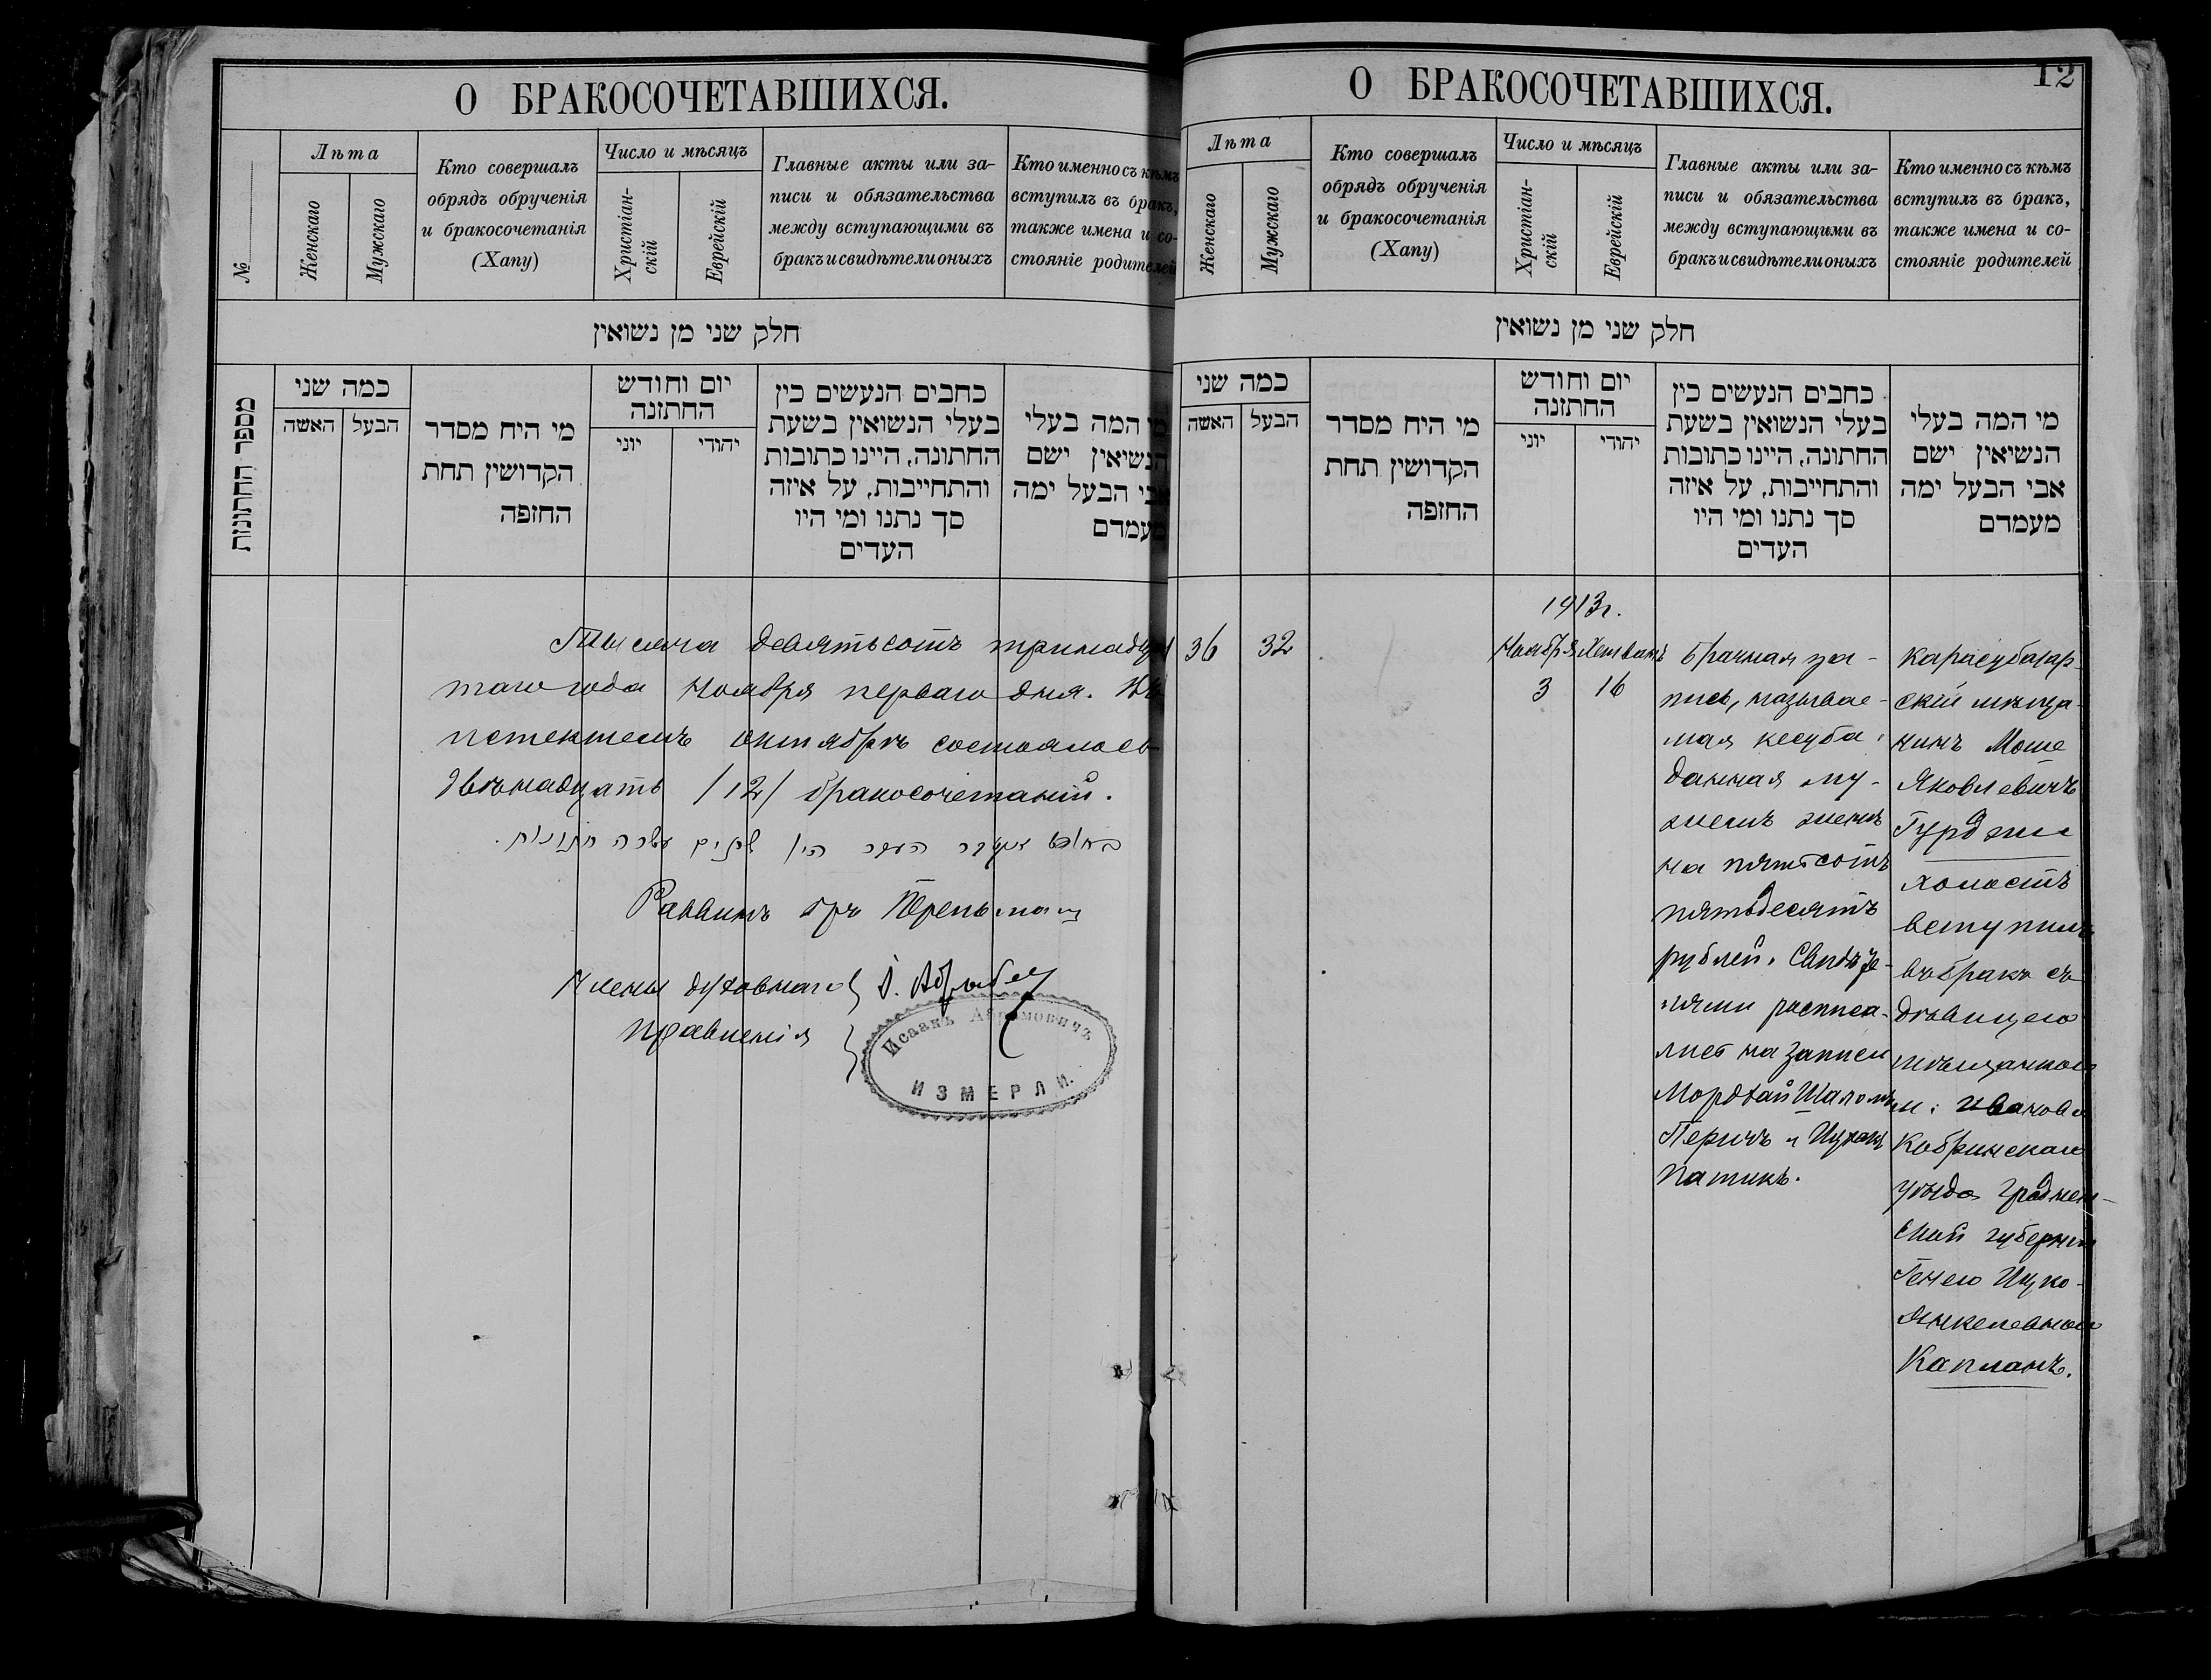 О БРАКОСОЧЕТАВШИХСЯ.
№
Лѣта
Женскаго
Мужскаго
Кто совершалъ
обрядъ обрученія
и бракосочетанія
(Хапу)
Число и мѣсяцъ
Христіан-
скій
Еврейскій
Главные акты или за-
писи и обязательства
между вступающими въ
бракъ и свидѣтели оныхъ
Кто именно съ кѣмъ
вступилъ въ бракъ,
также имена и со-
стояніе родителей
חלק שני מן נשואין
מספר החתונות
כמה שני
האשה
הבעל
מי היח מסדר
הקדושין תחת
החזפה
יום וחודש
החתזנה
יוני
יהודי
כחבים הנעשים כין
בעלי הנשואין בשעת
החתונה, היינו כתובות
והתחייבות, על איזה
סך נתנו ומי היו
העדים
מי המה בעלי
הנשיאין ישם
אבי הבעל ימה
מעמדם
Тысяча девятьсотъ тринадца
таго года Ноября перваго дня. Въ
истекшемъ октябрѣ состоялось
двѣнадцать /12/ бракосочетаній.
שתים עשרה חתונות.
Раввинъ
Члены духовнаго
правленія
Исаакъ Абрамовичъ
ИЗМЕРЛИ.
О БРАКОСОЧЕТАВШИХСЯ.
12
Лѣта
Женскаго
Мужскаго
Кто совершалъ
обрядъ обрученія
и бракосочетанія
(Хапу)
Число и мѣсяцъ
Христіан-
скій
Еврейскій
Главные акты или за-
писи и обязательства
между вступающими въ
бракъ и свидѣтели оныхъ
Кто именно съ кѣмъ
вступилъ въ бракъ,
также имена и со-
стояніе родителей
חלק שני מן נשואין
כמה שני
האשה
הבעל
מי היח מסדר
הקדושין תחת
החזפה
יום וחודש
החתזנה
יוני
יהודי
כחבים הנעשים כין
בעלי הנשואין בשעת
החתונה, היינו כתובות
והתחייבות, על איזה
סך נתנו ומי היו
העדים
מי המה בעלי
הנשיאין ישם
אבי הבעל ימה
מעמדם
36
32
1913г.
Ноября
3
Хешванъ
16
Брачная за-
пись, называе-
мая кесуба,
данная му-
жемъ женѣ
на пятьсотъ
пятьдесятъ
рублей. Свидѣте-
лями расписа-
лись на записи
Мордхай Шаломъ
Перичъ и Ицхакъ
Патикъ.
Карасубазар-
скій мѣща-
нинъ Моше
Яковлевичъ
Гурджи
холостъ
вступилъ
въ бракъ съ
дѣвицею
мѣщанкою
м. Иваново
Кобринскаго
уѣзда Гроднен-
ской губерніи
Генею Ицко-
Янкелевною
Капланъ.